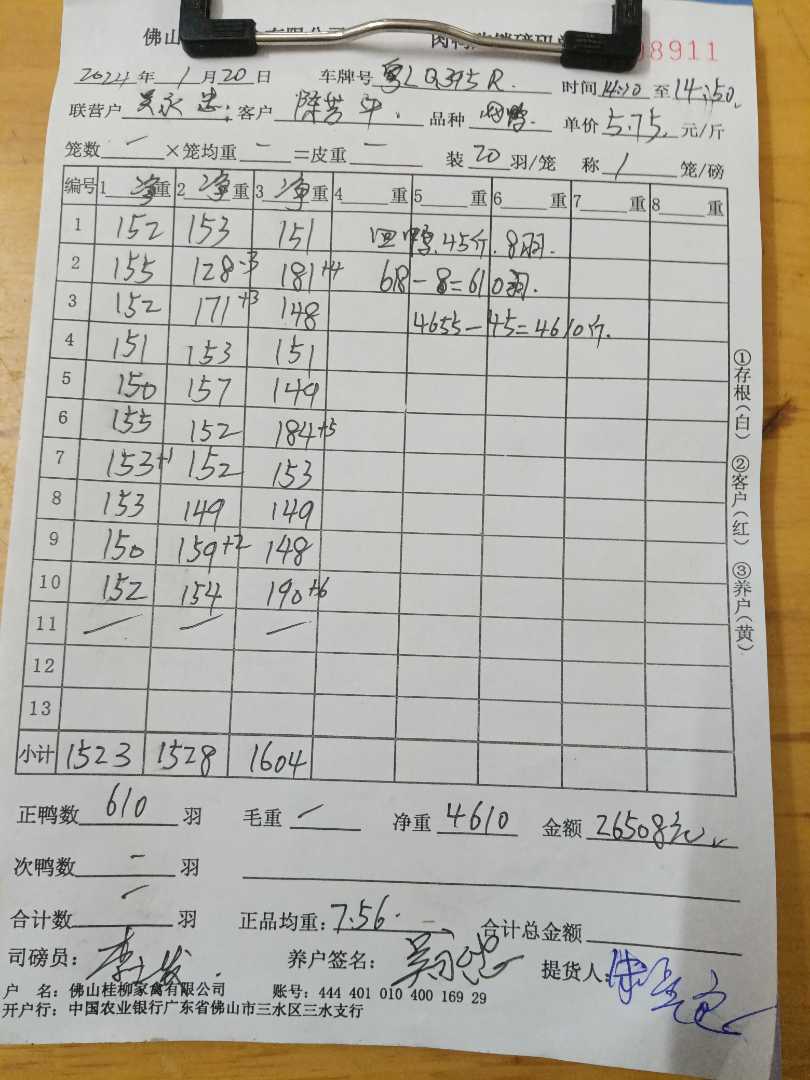 佛山
8911
2024年1月20日 车牌号 粤LQ395R. 时间14:10至14:50
联营户 吴永忠 客户 陈芳平. 品种 肉鸭. 单价 5.75. 元/斤
笼数 一 ×笼均重 一 =皮重 一 装 20 羽/笼 称 1 笼/磅
编号 1 净重 2 净重 3 净重 4 重 5 重 6 重 7 重 8 重
1 152 153 151 鸭.45斤.8羽.
2 155 128-3 181+4 618-8=610羽.
3 152 171+3 148 4655-45=4610斤.
4 151 153 151
5 150 157 149
6 155 152 184+5
7 153+1 152 153
8 153 149 149
9 150 159+2 148
10 152 154 190+6
11 — — —
12
13
小计 1523 1528 1604
①存根(白) ②客户(红) ③养户(黄)
正鸭数 610 羽 毛重 一 净重 4610 金额 26508元
次鸭数 一 羽
合计数 一 羽 正品均重: 7.56. 合计总金额
司磅员: 养户签名: 提货人:
户 名: 佛山桂柳家禽有限公司 账号: 444 401 010 400 169 29
开户行: 中国农业银行广东省佛山市三水区三水支行